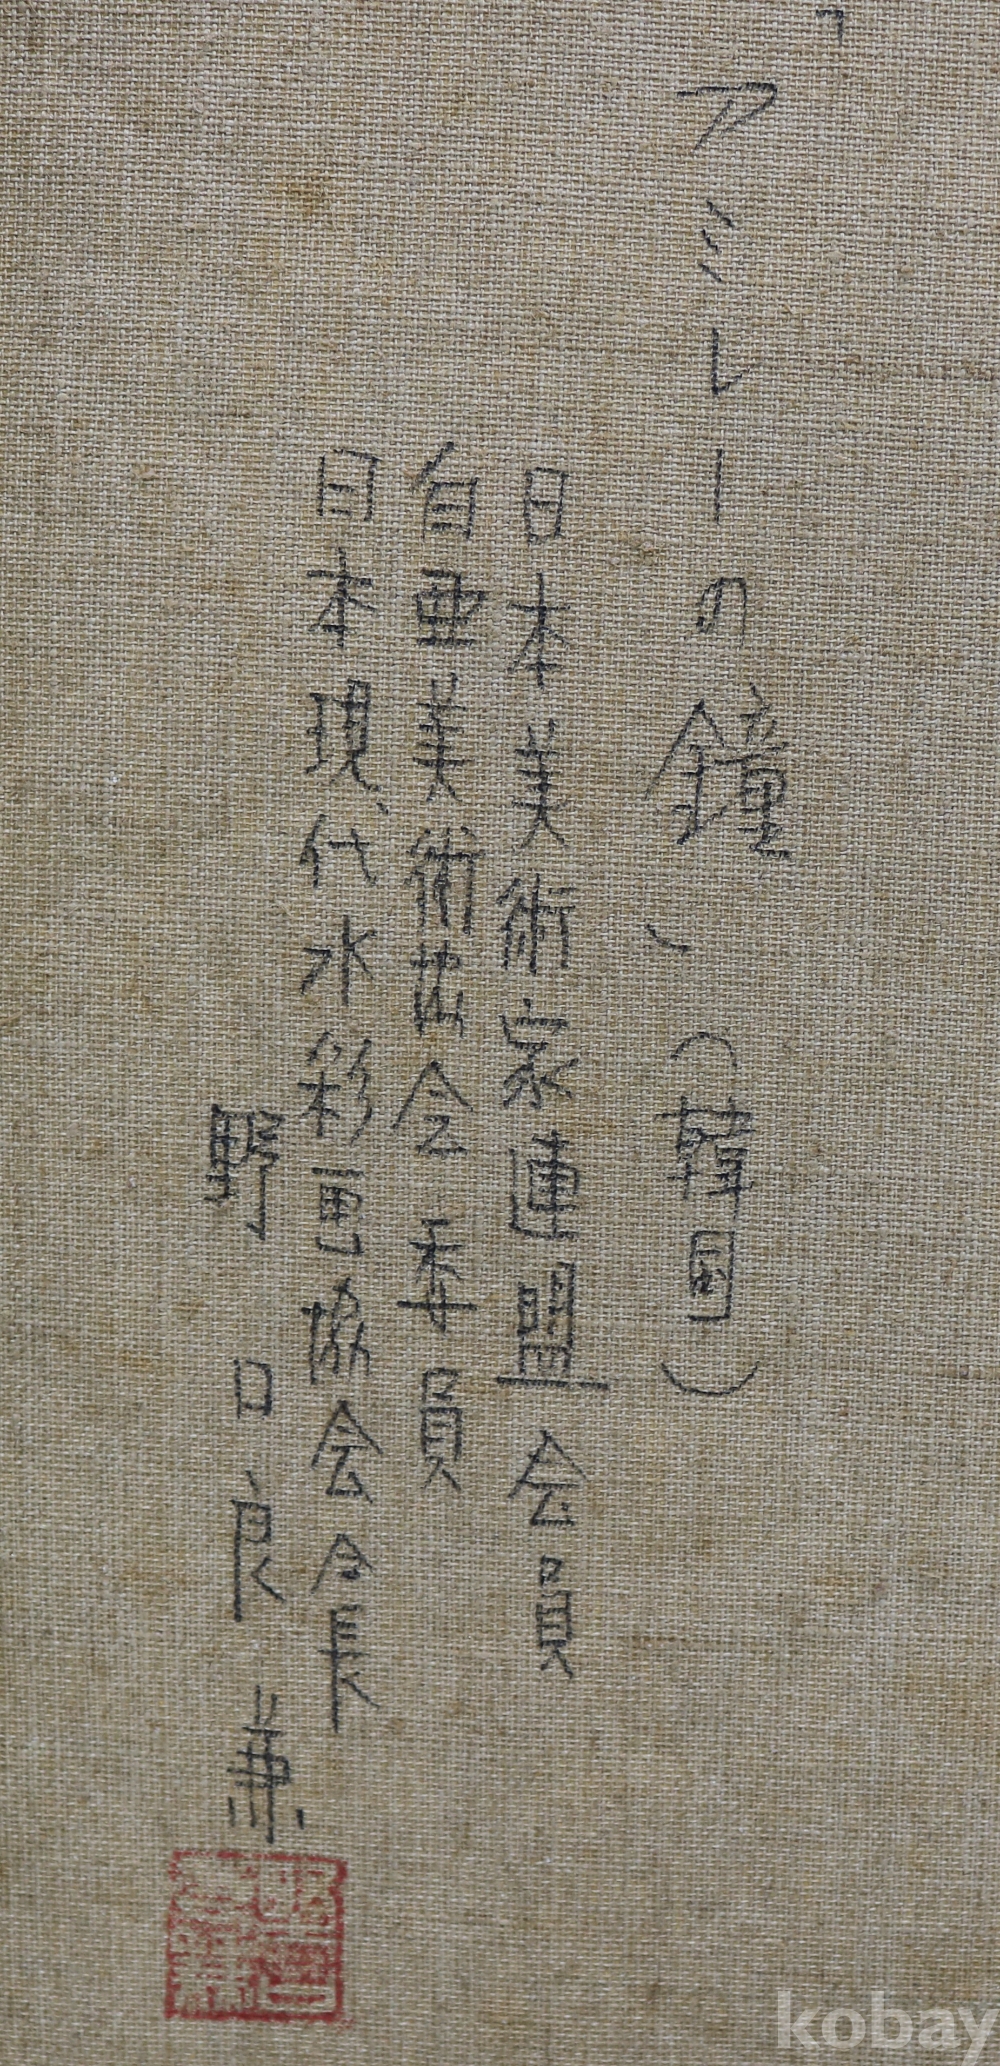 「アミレーの鐘」（韓国）
日本美術家連盟会員
白亜美術協会委員
日本現代水彩画協会会長
野口良兼
kobay